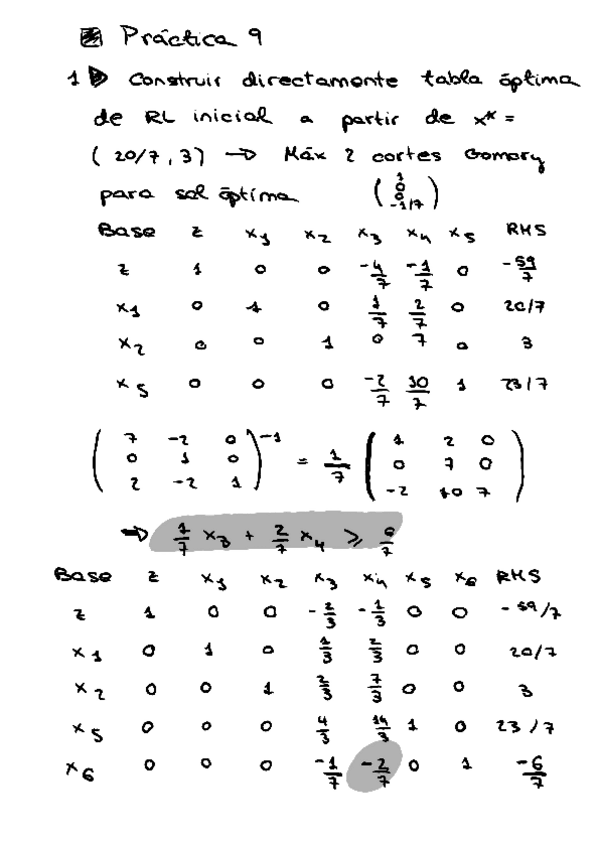 Práctica 9
1 Construir directamente tabla óptima
de RL inicial a partir de x* =
(20/7, 3) → Máx 2 cortes Gomory
para sol óptima (1 0 0 -1/7)
Base z x1 x2 x3 x4 x5 RHS
z 1 0 0 -4/7 -1/7 0 -59/7
x1 0 1 0 1/7 2/7 0 20/7
x2 0 0 1 0 7 0 3
x5 0 0 0 -2/7 10/7 1 23/7
(7 -2 0
0 1 0
2 -2 1)^-1 = 1/7 (1 2 0
0 7 0
-2 10 7)
⇒ 1/7 x3 + 2/7 x4 ≥ 6/7
Base z x1 x2 x3 x4 x5 x6 RHS
z 1 0 0 -2/3 -1/3 0 0 -59/7
x1 0 1 0 1/3 2/3 0 0 20/7
x2 0 0 1 2/3 7/3 0 0 3
x5 0 0 0 4/3 14/3 1 0 23/7
x6 0 0 0 -1/7 -2/7 0 1 -6/7